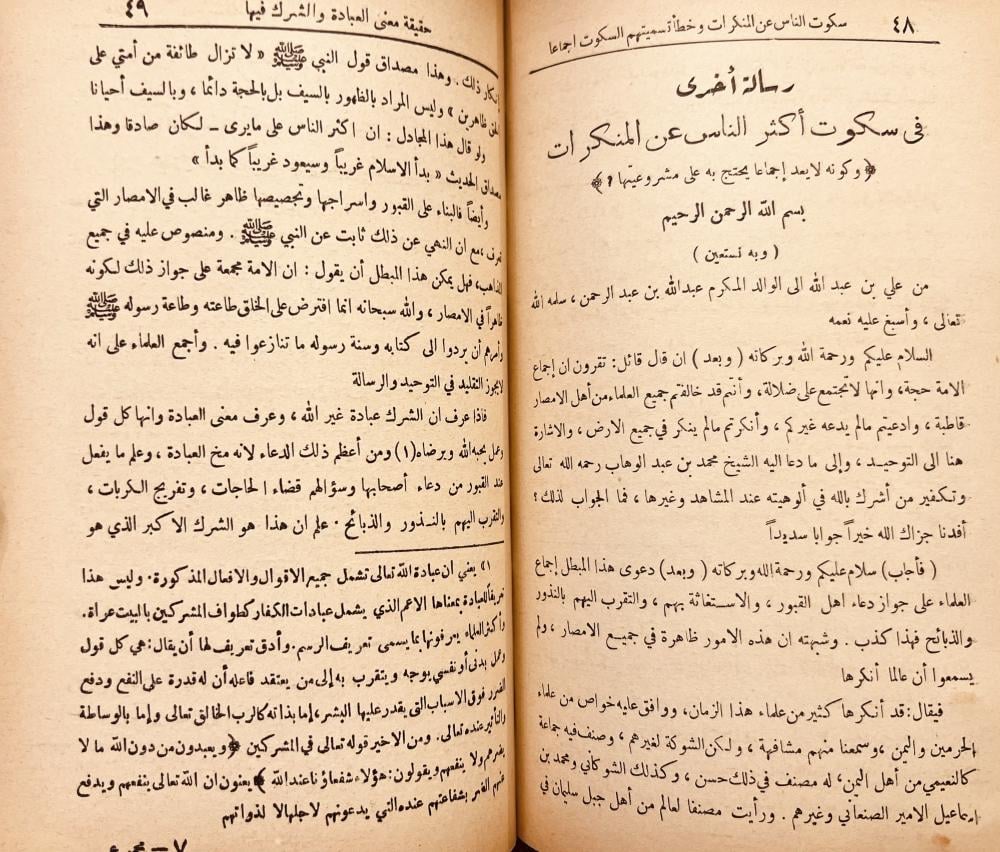 ٤٨ سكوت الناس عن المنكرات وخطأ تسميتهم السكوت اجماعا
رسالة أخرى
في سكوت أكثر الناس عن المنكرات
﴿ وكونه لايعد إجماعا يحتج به على مشروعيتها ؟ ﴾
بسم الله الرحمن الرحيم
( وبه نستعين )
من علي بن عبد الله الى الوالد المكرم عبدالله بن عبد الرحمن ، سلمه الله
تعالى ، وأسبغ عليه نعمه
السلام عليكم ورحمة الله وبركاته ( وبعد ) ان قال قائل : تقرون ان إجماع
الامة حجة، وانها لا تجتمع على ضلالة، وأنتم قد خالفتم جميع العلماء من أهل الامصار
قاطبة ، وادعيتم مالم يدعه غيركم ، وأنكرتم مالم ينكر في جميع الارض، والاشارة
هنا الى التوحيد ، وإلى ما دعا اليه الشيخ محمد بن عبد الوهاب رحمه الله تعالى
وتكفير من أشرك بالله في ألوهيته عند المشاهد وغيرها ، فما الجواب لذلك ؟
أفدنا جزاك الله خيراً جوابا سديداً
( فأجاب ) سلام عليكم ورحمة الله وبركاته ( وبعد ) دعوى هذا المبطل إجماع
العلماء على جواز دعاء اهل القبور ، والاستغاثة بهم ، والتقرب اليهم بالنذور
والذبائح فهذا كذب . وشبهته ان هذه الامور ظاهرة في جميع الامصار ، ولم
يسمعوا أن عالما أنكرها
فيقال: قد أنكرها كثير من علماء هذا الزمان، ووافق عليه خواص من علماء
الحرمين واليمن ،وسمعنا منهم مشافهة ، ولكن الشوكة لغيرهم ، وصنف فيه جماعة
كالنعيمي من أهل اليمن، له مصنف في ذلك حسن ، وكذلك الشوكاني ومحمد بن
اسماعيل الامير الصنعاني وغيرهم . ورأيت مصنفا لعالم من أهل جبل سليمان في
حقيقة معنى العبادة والشرك فيها ٤٩
إنكار ذلك . وهذا مصداق قول النبي ﷺ « لا تزال طائفة من أمتي على
الحق ظاهرين » وليس المراد بالظهور بالسيف بل بالحجة دائما ، وبالسيف أحيانا
ولو قال هذا المجادل : ان اكثر الناس على مايرى ــ لكان صادقا وهذا
مصداق الحديث « بدأ الاسلام غريباً وسيعود غريباً كما بدأ »
وأيضاً فالبناء على القبور واسراجها وتجصيصها ظاهر غالب في الامصار التي
تعرف ،مع ان النهي عن ذلك ثابت عن النبي ﷺ . ومنصوص عليه في جميع
المذاهب، فهل يمكن هذا المبطل أن يقول : ان الامة مجمعة على جواز ذلك لكونه
ظاهراً في الامصار ، والله سبحانه انما افترض على الخلق طاعته وطاعة رسوله ﷺ
وأمرهم أن يردوا الى كتابه وسنة رسوله ما تنازعوا فيه . وأجمع العلماء على انه
لايجوز التقليد في التوحيد والرسالة
فاذا عرف ان الشرك عبادة غير الله ، وعرف معنى العبادة وانها كل قول
وعمل يحبه الله ويرضاه (١) ومن أعظم ذلك الدعاء لانه مخ العبادة ، وعلم ما يفعل
عند القبور من دعاء أصحابها وسؤالهم قضاء الحاجات ، وتفريج الكربات ،
والتقرب اليهم بالنذور والذبائح · علم ان هذا هو الشرك الاكبر الذي هو
١» يعني ان عبادة الله تعالى تشمل جميع الاقوال والافعال المذكورة· وليس هذا
تعريفاً للعبادة بمعناها الاعم الذي يشمل عبادات الكفار كطواف المشركين بالبيت عراة.
وأكثر العلماء يعرفونها بما يسمى تعريف الرسم. وأدق تعريف لها أن يقال: هي كل قول
وعمل بدني أو نفسي يوجه ويتقرب به إلى من يعتقد فاعله أن له قدرة على النفع ودفع
الضرر فوق الاسباب التي يقدر عليها البشر، إما بذاته كالرب الخالق تعالى وإما بالوساطة
والتأثير عنده تعالى. ومن الاخير قوله تعالى في المشركين ﴿ ويعبدون من دون الله ما لا
يضرهم ولا ينفعهم ويقولون: هؤلاء شفعاؤنا عند الله ﴾ يعنون ان الله تعالى ينفعهم ويدفع
عنهم الضر بشفاعتهم عنده التي يدعونهم لاجلها لا لذواتهم
٧ —